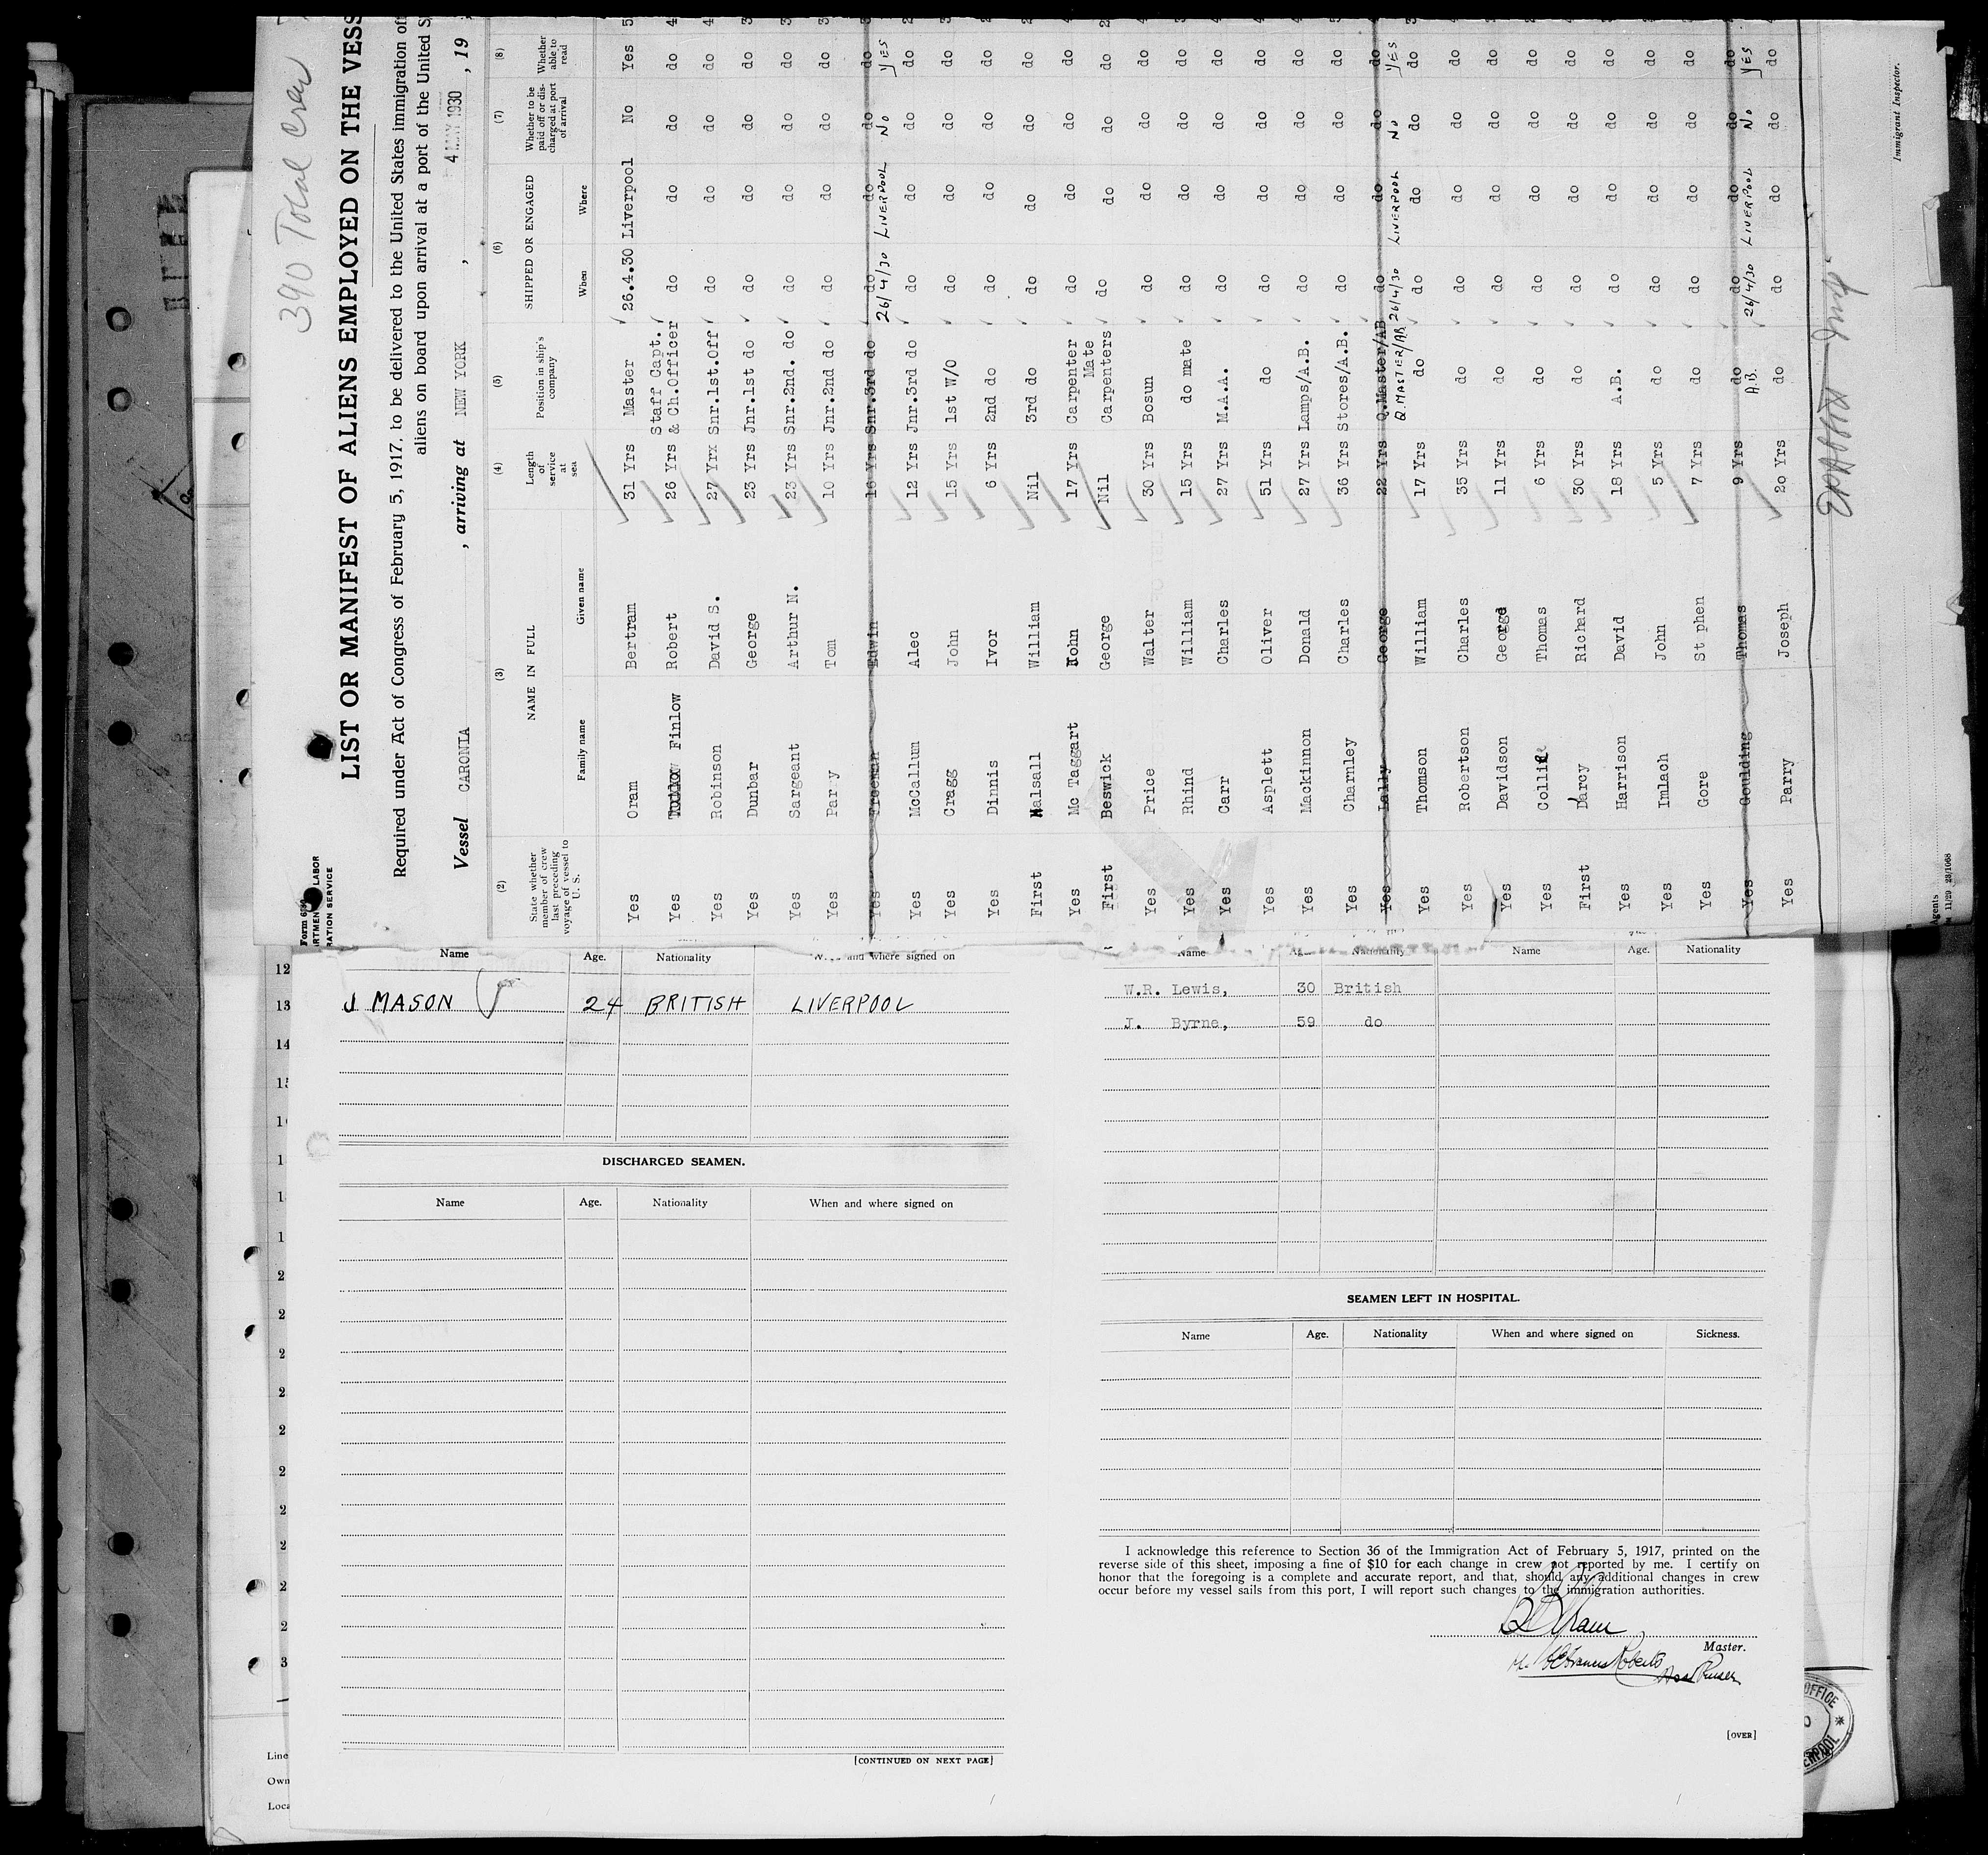 390 Total Crew
Form 689
LABOR
RATION SERVICE
LIST OR MANIFEST OF ALIENS EMPLOYED ON THE VESS
Required under Act of Congress of February 5, 1917, to be delivered to the United States immigration of
aliens on board upon arrival at a port of the United S
Vessel CARONIA , arriving at NEW YORK , 4 MAY 1930 , 19
(2) (3) (4) (5) (6) (7) (8)
State whether member of crew last preceding voyage of vessel to U. S.
NAME IN FULL
Family name Given name
Length of service at sea
Position in ship's company
SHIPPED OR ENGAGED
When Where
Whether to be paid off or discharged at port of arrival
Whether able to read
Yes Oram Bertram 31 Yrs Master 26.4.30 Liverpool No Yes
Yes Finlow Robert 26 Yrs Staff Capt. & Ch.Officer do do do do
Yes Robinson David S. 27 Yrx Snr.1st.Off do do do do
Yes Dunbar George 23 Yrs Jnr.1st do do do do do
Yes Sargeant Arthur N. 23 Yrs Snr.2nd. do do do do do
Yes Par y Tom 10 Yrs Jnr.2nd do do do do do
Yes Freeman Edwin 16 Yrs Snr.3rd do do do do do
26/4/30 LIVERPOOL No YES
Yes McCallum Alec 12 Yrs Jnr.3rd do do do do do
Yes Cragg John 15 Yrs 1st W/O do do do do
Yes Dinnis Ivor 6 Yrs 2nd do do do do do
First Halsall William Nil 3rd do do do do do
Yes Mc Taggart John 17 Yrs Carpenter do do do do
First Beswick George Nil Carpenters Mate do do do do
Yes Price Walter 30 Yrs Bosun do do do do
Yes Rhind William 15 Yrs do mate do do do do
Yes Carr Charles 27 Yrs M.A.A. do do do do
Yes Asplett Oliver 51 Yrs do do do do do
Yes Mackinnon Donald 27 Yrs Lamps/A.B. do do do do
Yes Charnley Charles 36 Yrs Stores/A.B. do do do do
Yes Lally George 22 Yrs Q.Master/AB do do do do
Q.MASTER/AB 26/4/30 LIVERPOOL No YES
Yes Thomson William 17 Yrs do do do do do
Yes Robertson Charles 35 Yrs do do do do do
Yes Davidson George 11 Yrs do do do do do
Yes Thomas 6 Yrs do do do do do
First Darcy Richard 30 Yrs do do do do do
Yes Harrison David 18 Yrs A.B. do do do do
Yes Imlach John 5 Yrs do do do do do
Yes Gore St phen 7 Yrs do do do do do
Yes Goulding Thomas 9 Yrs do do do do do
A.B. 26/4/30 LIVERPOOL No YES
Yes Parry Joseph 20 Yrs do do do do do
Immigrant Inspector.
Agents
11/29 23/1068
12
13
14
Name Age. Nationality and where signed on
J MASON 24 BRITISH LIVERPOOL
DISCHARGED SEAMEN.
Name Age. Nationality When and where signed on
[CONTINUED ON NEXT PAGE]
Name Nationality Name Age. Nationality
W.R. Lewis, 30 British
J. Byrne, 59 do
SEAMEN LEFT IN HOSPITAL.
Name Age. Nationality When and where signed on Sickness.
I acknowledge this reference to Section 36 of the Immigration Act of February 5, 1917, printed on the
reverse side of this sheet, imposing a fine of $10 for each change in crew not reported by me. I certify on
honor that the foregoing is a complete and accurate report, and that, should any additional changes in crew
occur before my vessel sails from this port, I will report such changes to the immigration authorities.
Master.
[OVER]
OFFICE
Line
Own
Loca